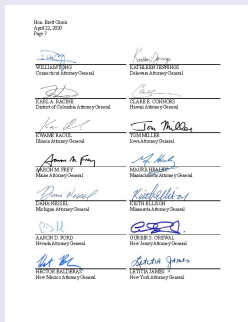 Hon. Brett Giroir
April 22, 2020
Page 7
WILLIAM TONG
Connecticut Attorney General
KATHLEEN JENNINGS
Delaware Attorney General
KARL A. RACINE
District of Columbia Attorney General
CLARE E. CONNORS
Hawaii Attorney General
Tom Miller
KWAME RAOUL
Illinois Attorney General
TOM MILLER
Iowa Attorney General
Aaron M. Frey
AARON M. FREY
Maine Attorney General
MAURA HEALEY
Massachusetts Attorney General
Dana Nessel
Keith Ellison
DANA NESSEL
Michigan Attorney General
KEITH ELLISON
Minnesota Attorney General
AARON D. FORD
Nevada Attorney General
GURBIR S. GREWAL
New Jersey Attorney General
Letitia James
HECTOR BALDERAS
New Mexico Attorney General
LETITIA JAMES
New York Attorney General